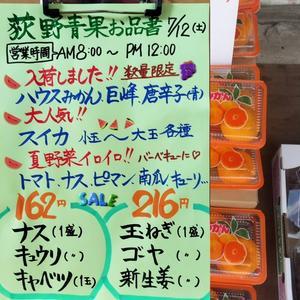 荻野青果お品書 7/12(土)
営業時間 AM8:00〜PM12:00
入荷しました!! 数量限定
ハウスみかん、巨峰、唐辛子(青)
大人気!!
スイカ 小玉〜大玉各種
夏野菜イロイロ!! バーベキューに♡
トマト、ナス、ピーマン、南瓜、キュウリ...
162円 SALE 216円
ナス(1盛) 玉ねぎ(1盛)
キュウリ(〃) ゴヤ(〃)
キャベツ(1玉) 新生姜(〃)